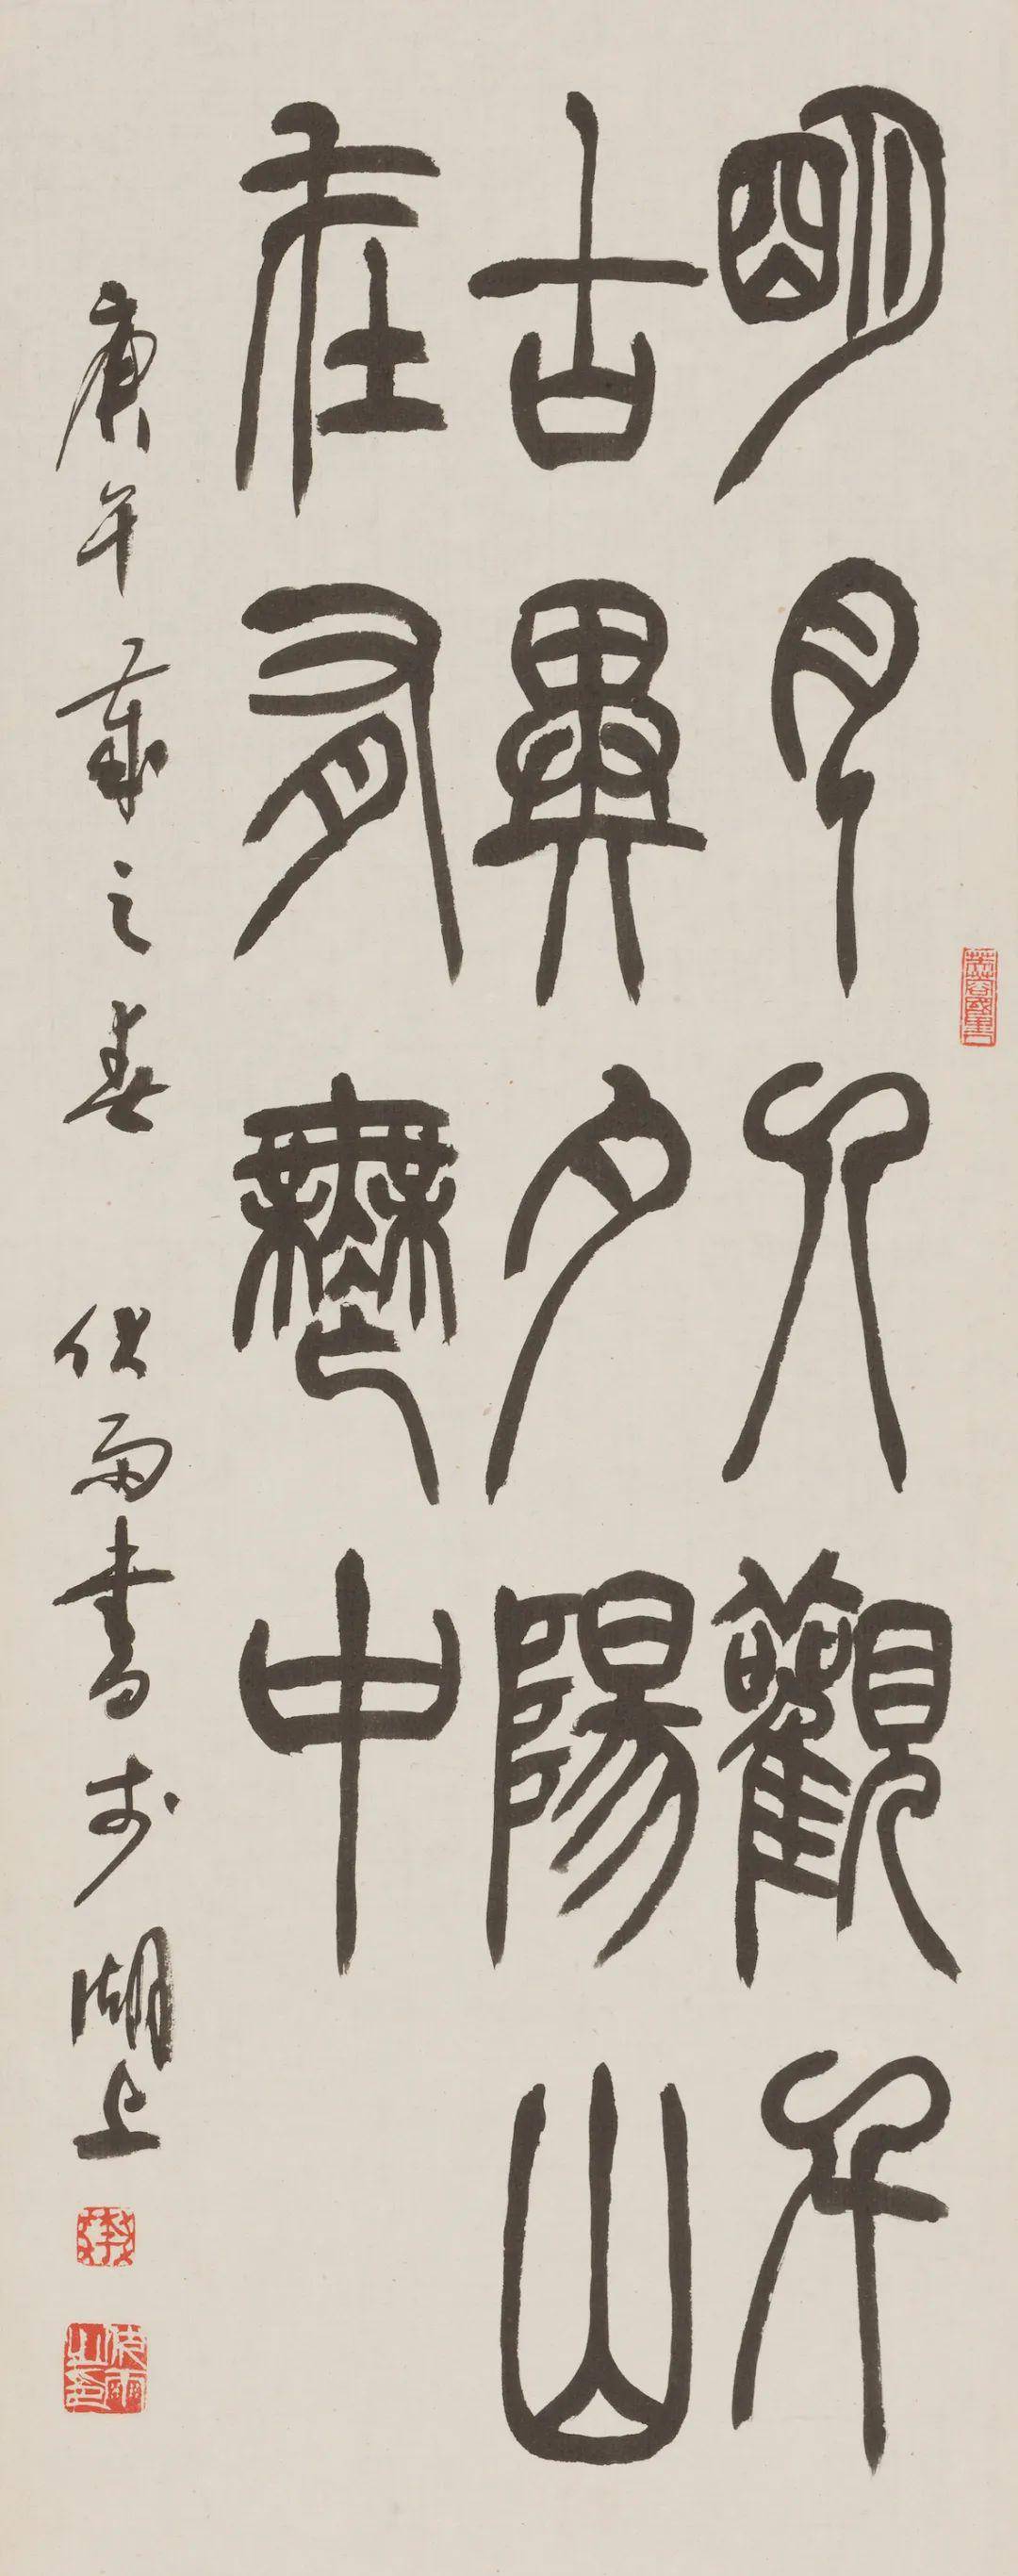 明月人觀千
古異夕陽山
在有無中
庚午歲之春 伏雨書於湖上